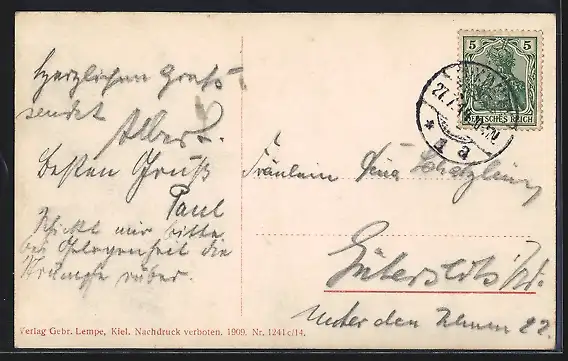 Herzlichen Gruß
sendet
Albert.
Besten Gruß
Paul
Schickt mir bitte
bei Gelegenheit die
Strümpfe rüber.
5 5
DEUTSCHES REICH
27.7.
* a
Fräulein Lina
Gütersloh i/W.
Unter den Ulmen 22.
Verlag Gebr. Lempe, Kiel. Nachdruck verboten. 1909. Nr. 1241c/14.